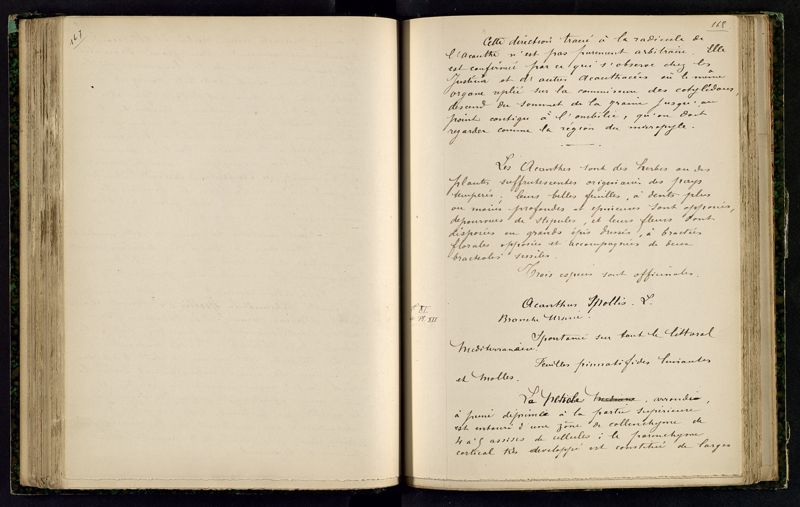 167
168
Cette direction tracée à la radicule de
l'Acanthe n'est pas purement arbitraire. Elle
est confirmée par ce qui s'observe chez les
Justicia et d'autres Acanthacées où le même
organe replié sur la commissure des cotylédons,
descend du sommet de la graine jusqu'au
point contigu à l'ombilic, qu'on doit
regarder comme la région du micropyle.
Les Acanthes sont des herbes ou des
plantes suffrutescentes originaires des pays
tempérés; leurs belles feuilles, à dents plus
ou moins profondes et épineuses sont opposées,
dépourvues de stipules, et leurs fleurs sont
disposées en grands épis dressés, à bractées
florales opposées et accompagnées de deux
bractéoles stériles.
Trois espèces sont officinales.
Acanthus Mollis. L.
Branche Ursine.
Pl. XI.
Pl. XII
Spontané sur tout le littoral
Méditerranéen.
Feuilles pinnatifides luisantes
et molles.
Le pétiole arrondi,
à peine déprimé à la partie supérieure
est entouré d'une zone de collenchyme de
4 à 5 assises de cellules; le parenchyme
cortical très développé est constitué de larges